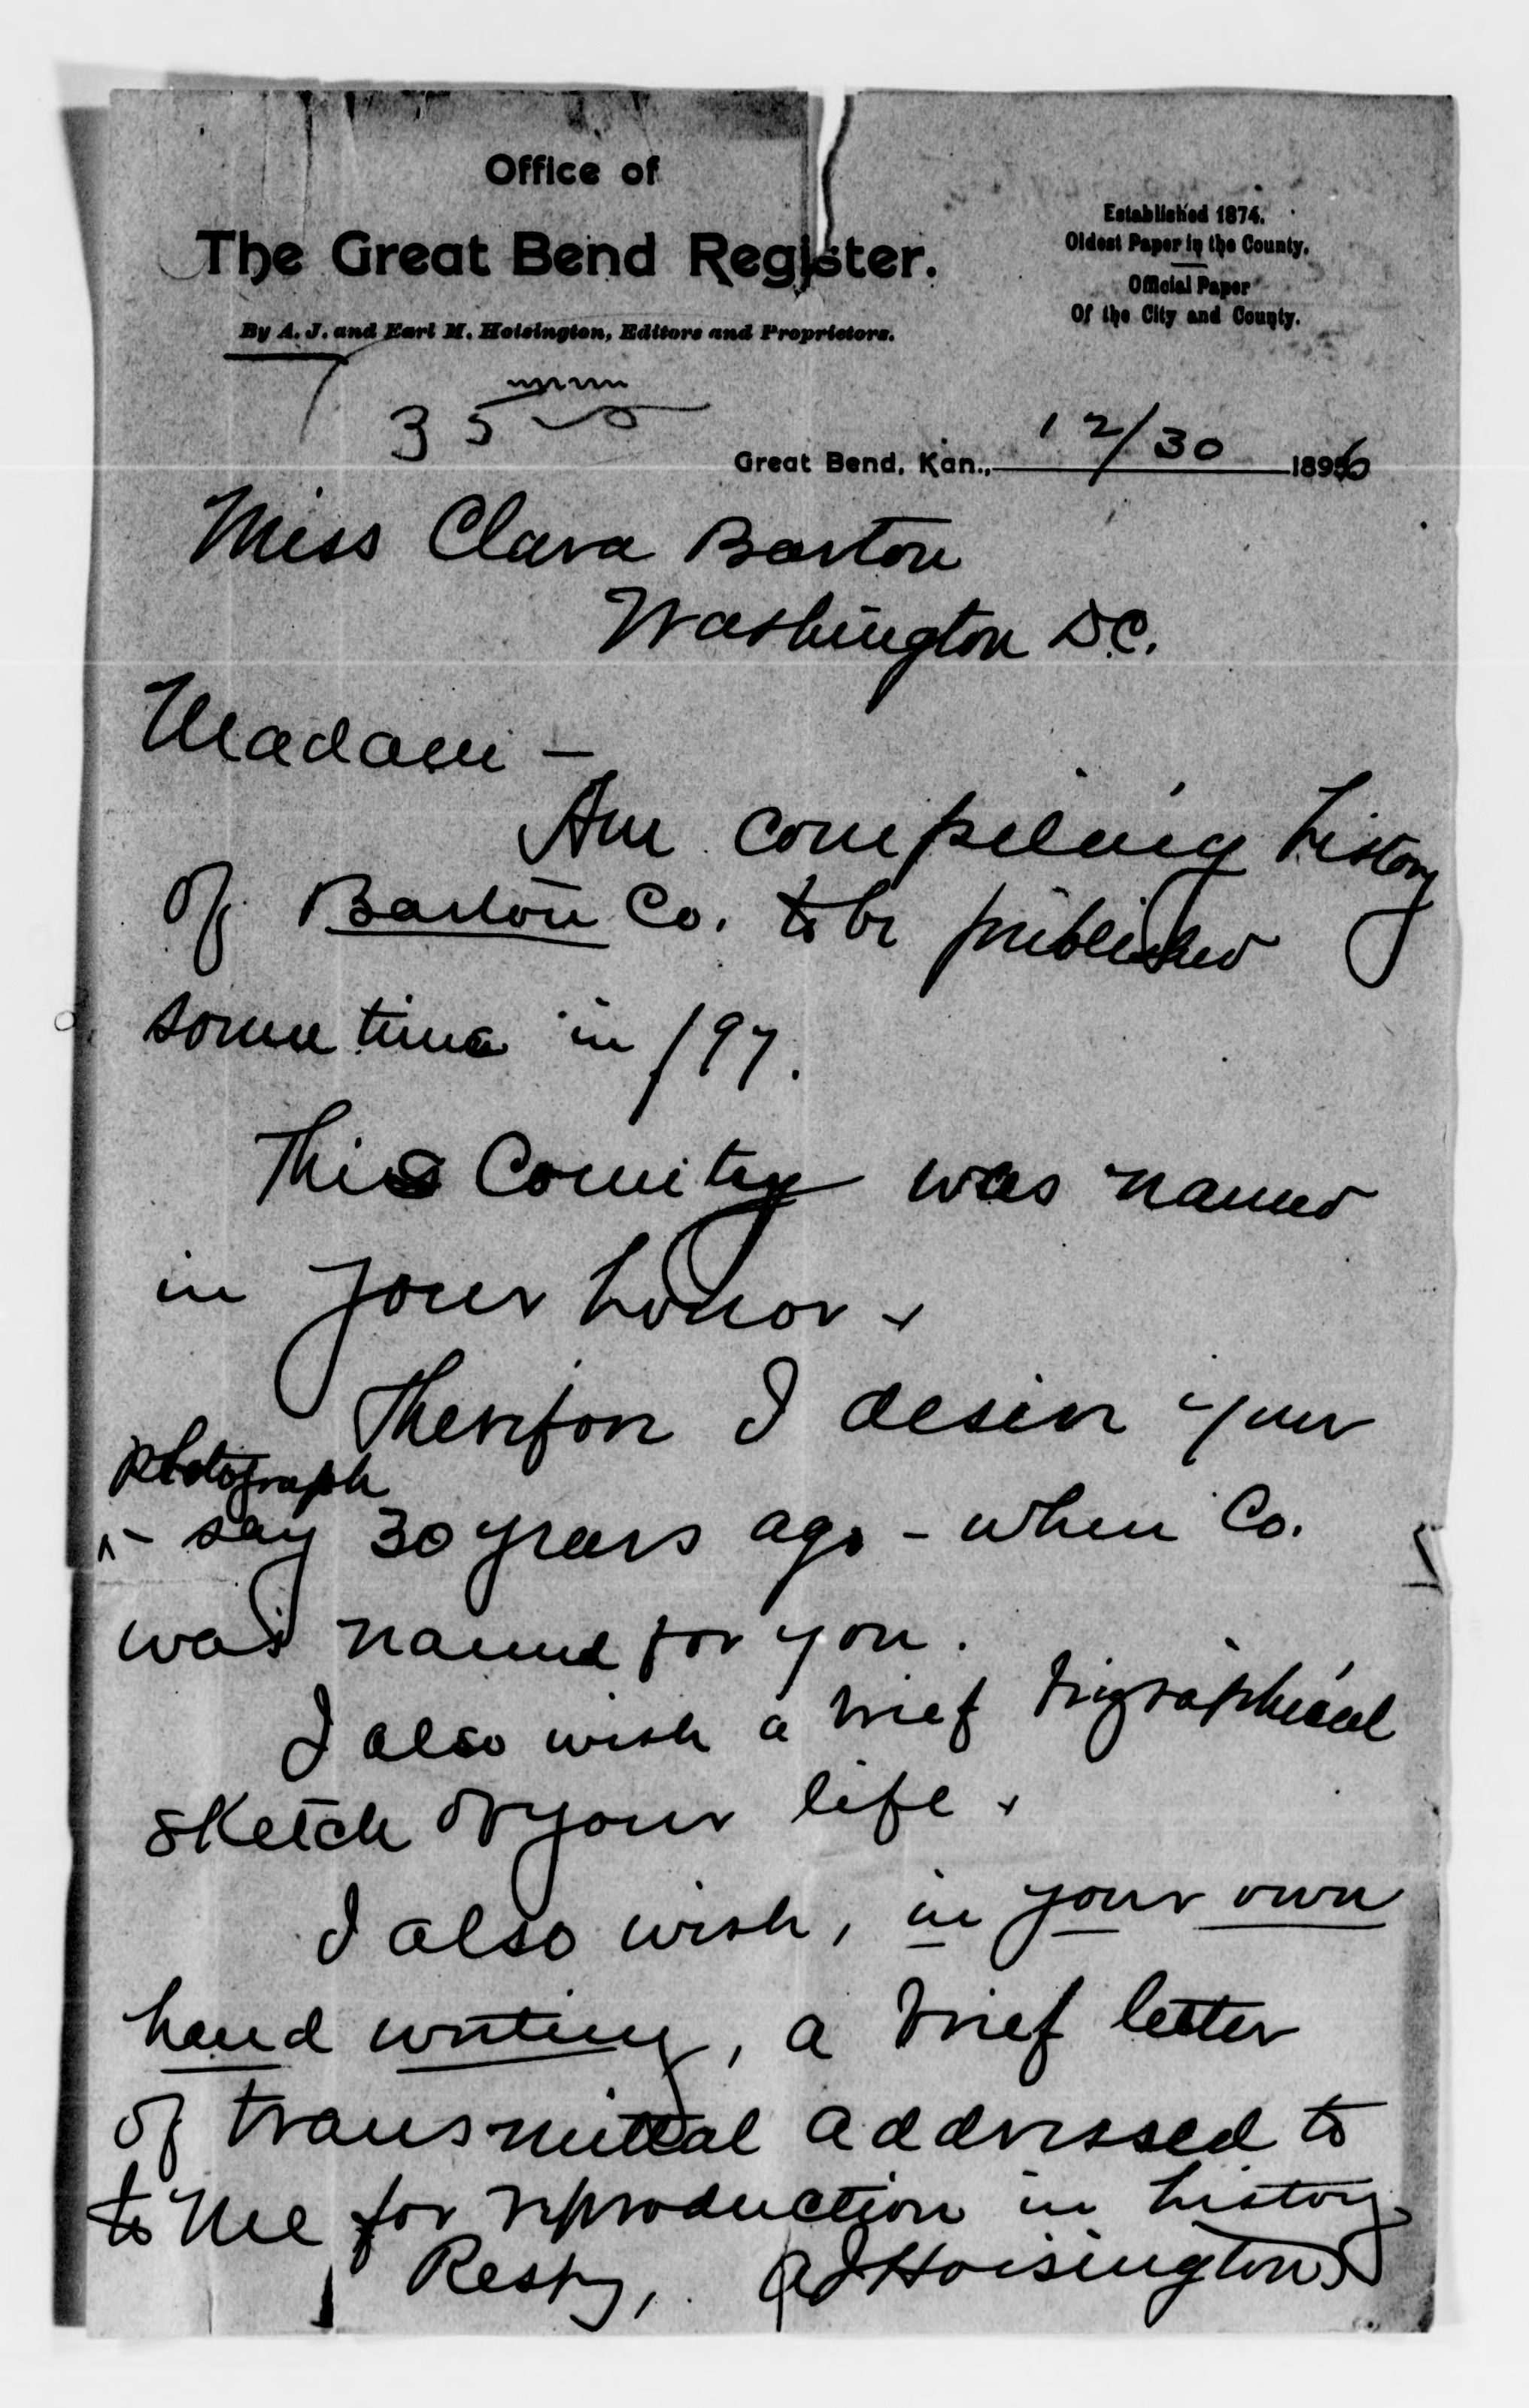 Office of
The Great Bend Register.
By A. J. and Earl M. Hoisington, Editors and Proprietors.
Established 1874.
Oldest Paper in the County.
Official Paper
Of the City and County.
35
Great Bend, Kan., 12/30 1896
Miss Clara Barton
Washington D.C.
Madam —
Am compiling history
of Barton Co. to be published
some time in /97.
This County was named
in your honor.
Therefore I desire your
photograph
^ - say 30 years ago - when Co.
was named for you.
I also wish a brief biographical
sketch of your life.
I also wish, in your own
hand writing, a brief letter
of transmittal addressed to
to me for reproduction in history.
Respy, A J Hoisington